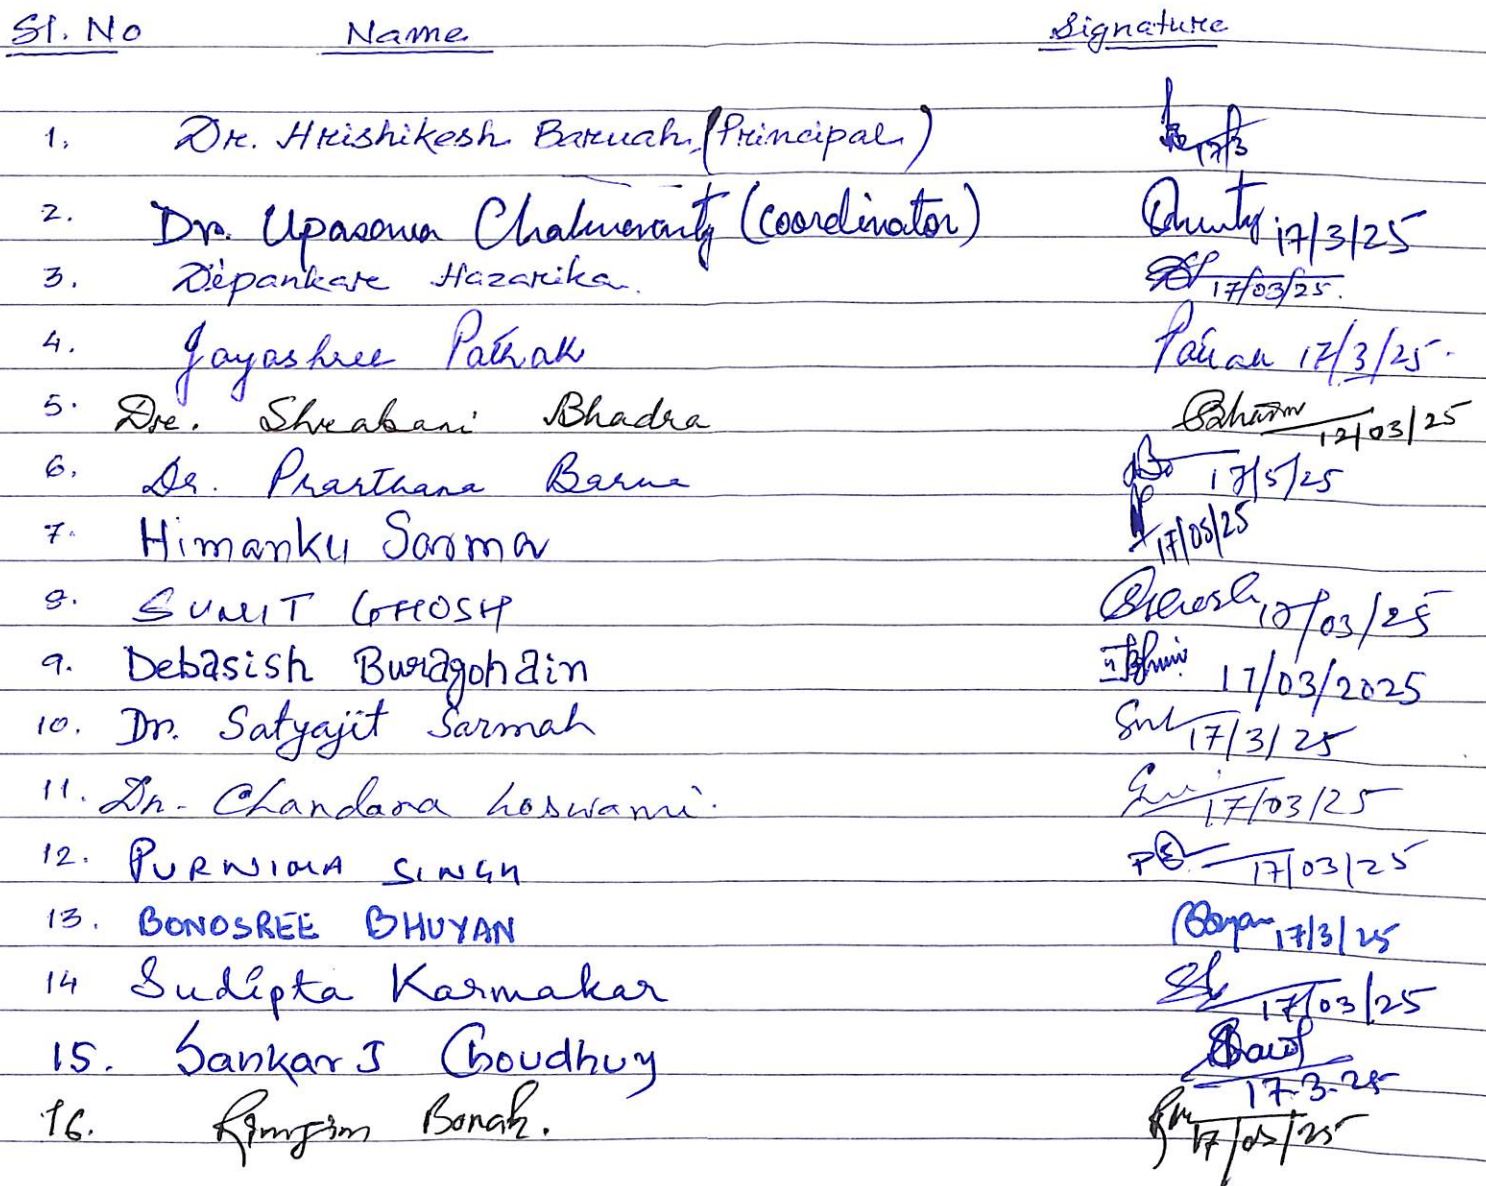 Sl. No Name Signature
1. Dr. Hrishikesh Baruah (Principal) 17/3
2. Dr. Upasona Chakravarty (Coordinator) 17/3/25
3. Dipankar Hazarika. 17/03/25.
4. Jayashree Pathak Pathak 17/3/25.
5. Dr. Shrabani Bhadra /03/25
6. Dr. Prarthana Barua
7. Himanku Sarma
8. SUMIT GHOSH Ghosh 17/03/25
9. Debasish Buragohain 17/03/2025
10. Dr. Satyajit Sarmah 17/3/25
11. Dr. Chandana Goswami. 17/03/25
12. PURNIMA SINGH PS 17/03/25
13. BONOSREE BHUYAN 17/3/25
14 Sudipta Karmakar 17/03/25
15. Sankar J Choudhury 17.3.25
16. Rimjim Borah. 17/03/25